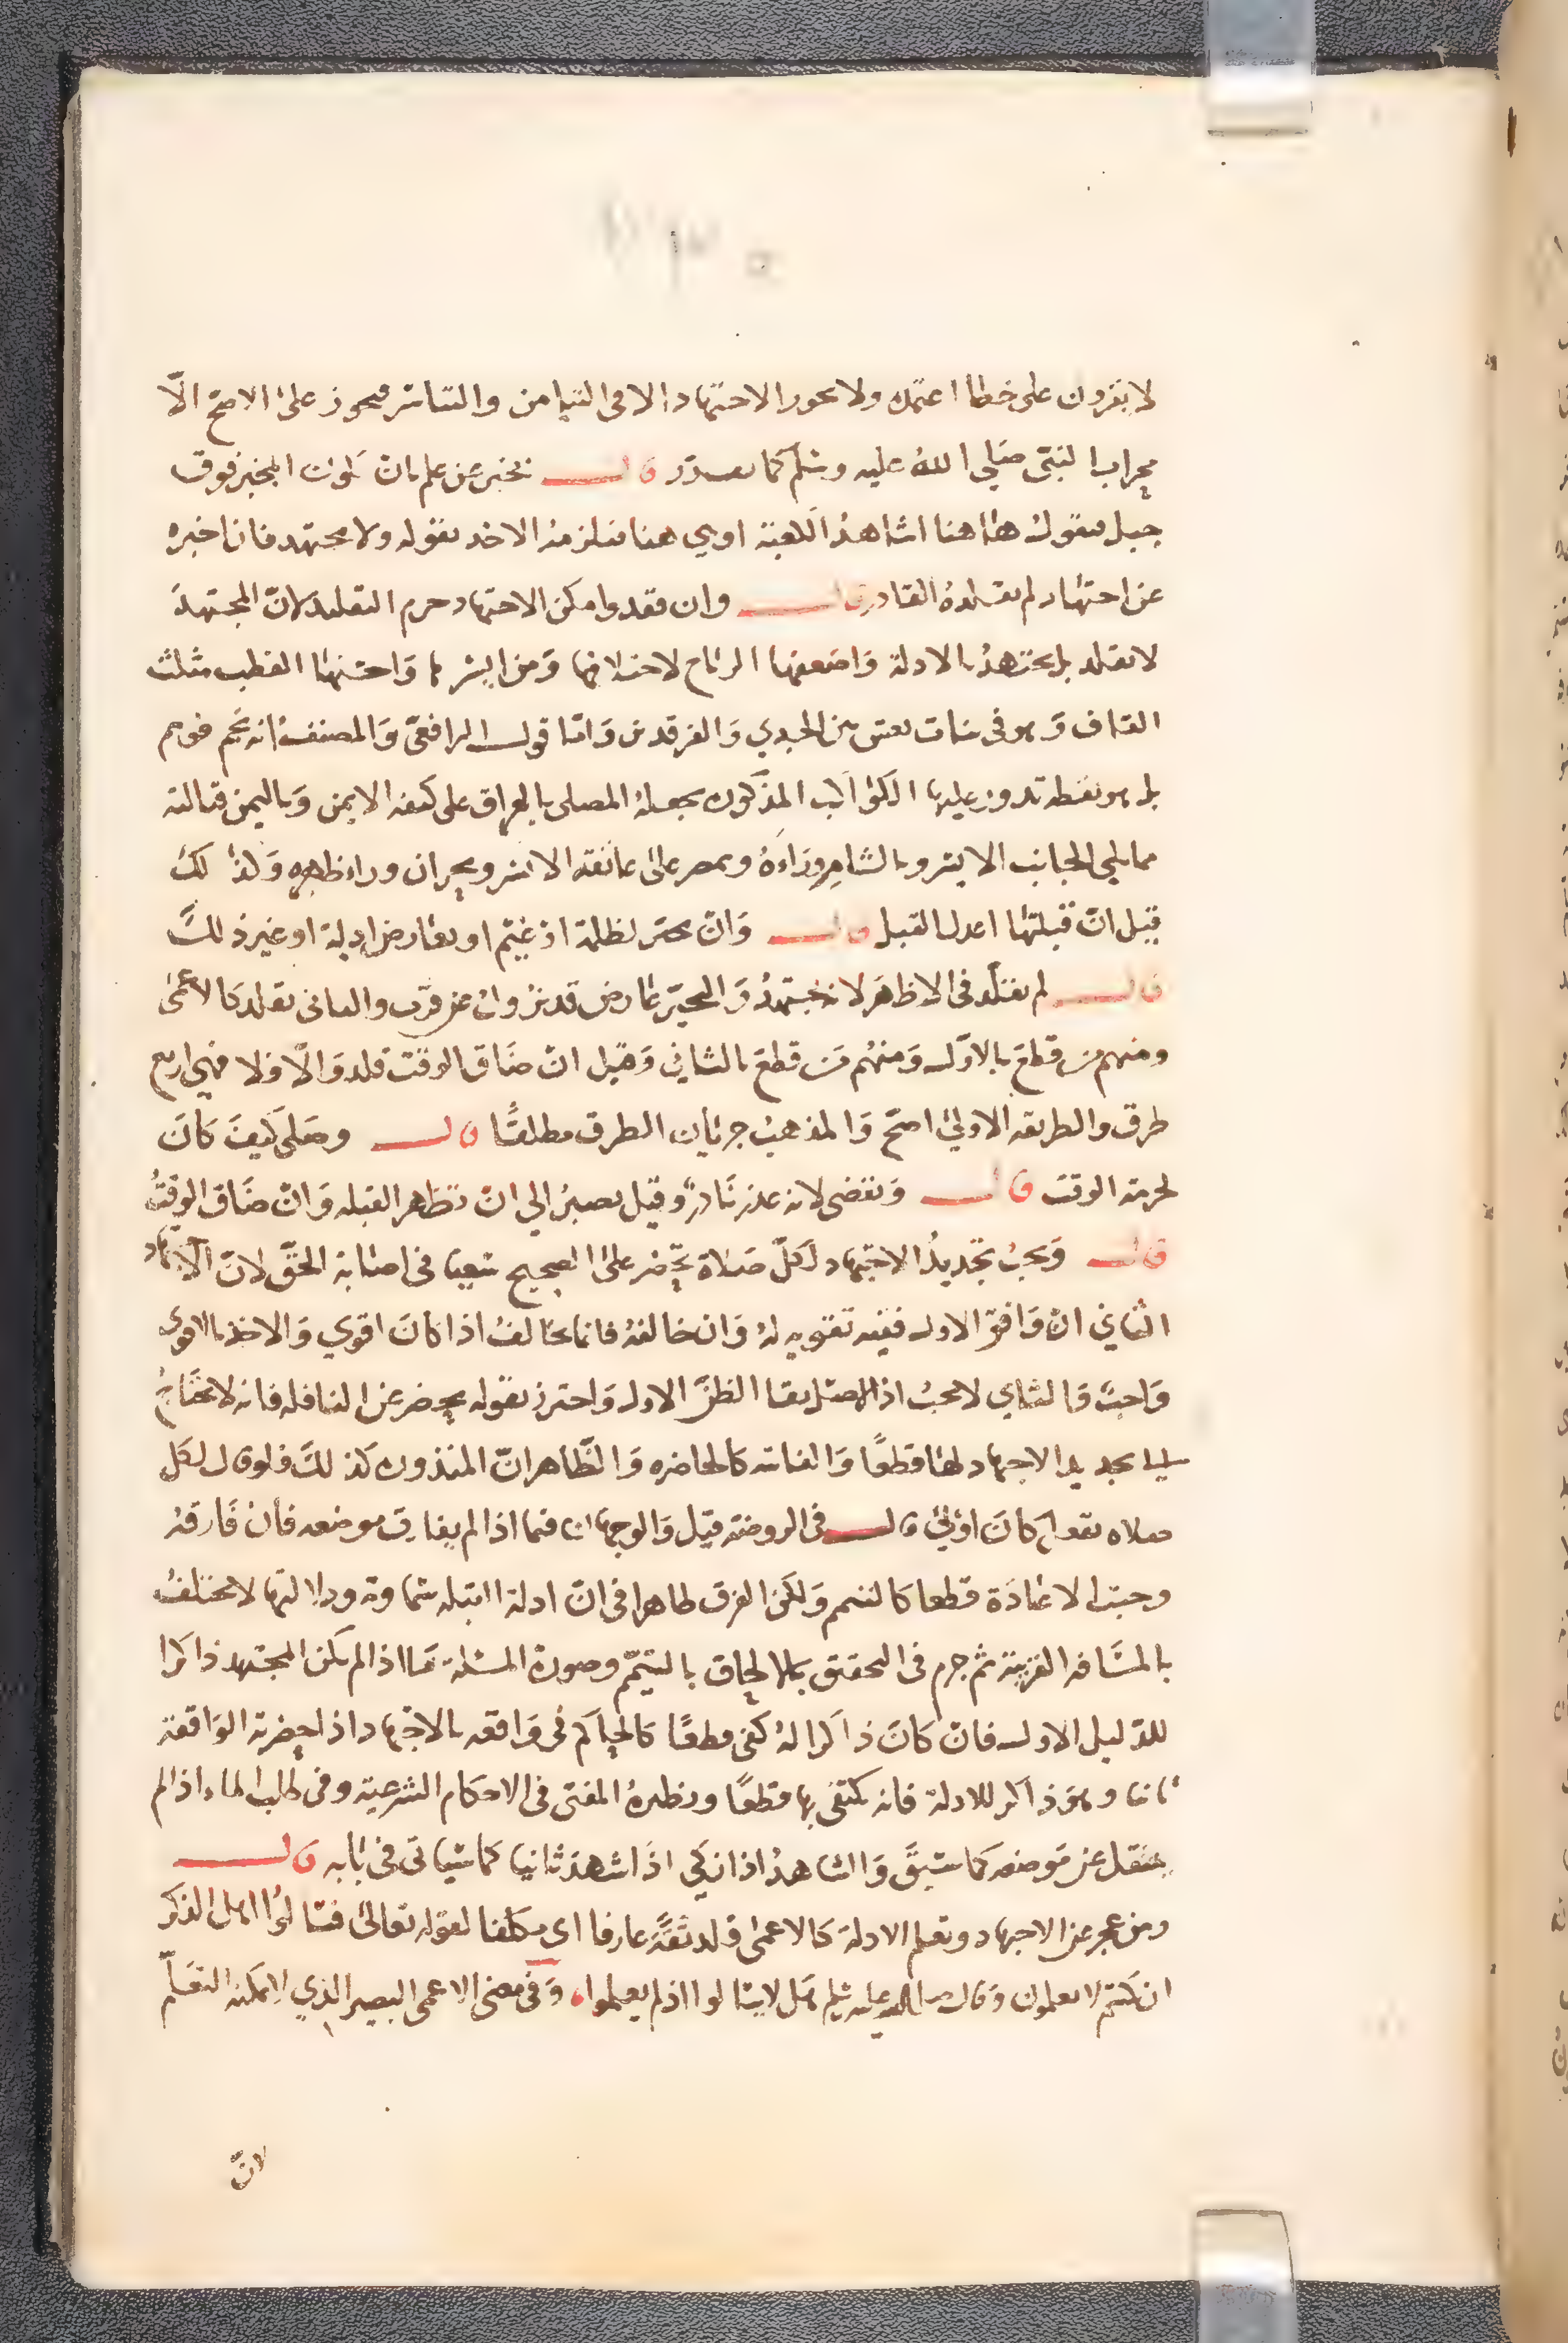 لا يقرون على خطا اعتمد ولا يجوز الاجتهاد الا في التيامن والتياسر فيجوز على الاصح الا
محراب النبي صلي الله عليه وسلم كما تقدم قال يخبر عن علم بان يكون المخبر فوق
جبل فيقول ها هنا اشاهد الكعبة او هي هنا فيلزمه الاخذ بقوله ولا يجتهد فان اخبره
عن اجتهاد لم يقلده القادر قال وان فقد وامكن الاجتهاد حرم التقليد لان المجتهد
لا يقلد بل يجتهد بالادلة واضعفها الرياح لاختلافها واحسنها القطب مثلث
القاف وهو في بنات نعش بين الجدي والفرقدين واما قول الرافعي والمصنف انه نجم فوهم
بل هو نقطه تدور عليها الكواكب المذكور يجعله المصلى بالعراق على كتفه الايمن وباليمن قبالته
مما يلي الجانب الايسر وبالشام وراءه وبمصر على عاتقه الايسر وبحران وراء ظهره ولذلك
قيل ان قبلتها اعدل القبل قال وان تحير لظلمة او غيم او تعارض ادلة او غير ذلك
قال لم يقلد في الاظهر لانه مجتهد والتحير عارض قد يزول عن قرب والثاني يقلد كالاعمى
ومنهم من قطع بالاول ومنهم من قطع بالثاني وقيل ان ضاق الوقت قلد والا فلا فهي اربع
طرق والطريقه الاولى اصح والمذهب جريان الطرق مطلقا قال وصلى كيف كان
لحرمة الوقت قال ويقضى لانه عذر نادر وقيل يصبر الي ان تظهر القبله وان ضاق الوقت
قال ويجب تجديد الاجتهاد لكل صلاة تحضر على الصحيح سعيا في اصابة الحق لان الاجتهاد
الثاني ان وافق الاول ففيه تقويه له وان خالفه فانما يخالف اذا كان اقوي والاخذ بالاقوى
واجب والثاني لا يجب اذ الاصل بقا الظن الاول واحترز بقوله يحضر عن النافله فانه لا يحتاج
تجديد الاجتهاد لها قطعا والفائته كالحاضره والظاهر ان المنذوره كذلك فلو قال لكل
صلاه كان اولى قال في الروضه قيل والوجهان فيما اذا لم يفارق موضعه فان فارقه
وجبت الاعادة قطعا كالتيمم ولكن الفرق ظاهر في ان ادلة القبله سماويه ودلالتها لا تختلف
بالمسافه القريبة ثم جزم في التحقيق بالالحاق بالتيمم وصورة المسئلة ما اذا لم يكن المجتهد ذاكرا
للدليل الاول فان كان ذاكرا له كفى قطعا كالحاكم في واقعه بالاجتهاد اذا حضرته الواقعة
ثانيا وهو ذاكر للادلة فانه يكتفى بها قطعا ونظيره المفتي في الاحكام الشرعية وفي طلب الماء اذا لم
ينتقل عن موضعه كما سبق والشاهد اذا زكي اذا شهد ثانيا كما سياتى في بابه قال
ومن عجز عن الاجتهاد وتعلم الادلة كالاعمى قلد ثقة عارفا اى مكلفا لقوله تعالى فسالوا اهل الذكر
ان كنتم لا تعلمون وقال صلى الله عليه وسلم هل لا سالوا اذ لم يعلموا وفى معنى الاعمى البصير الذي لا يمكنه التعلم
لان